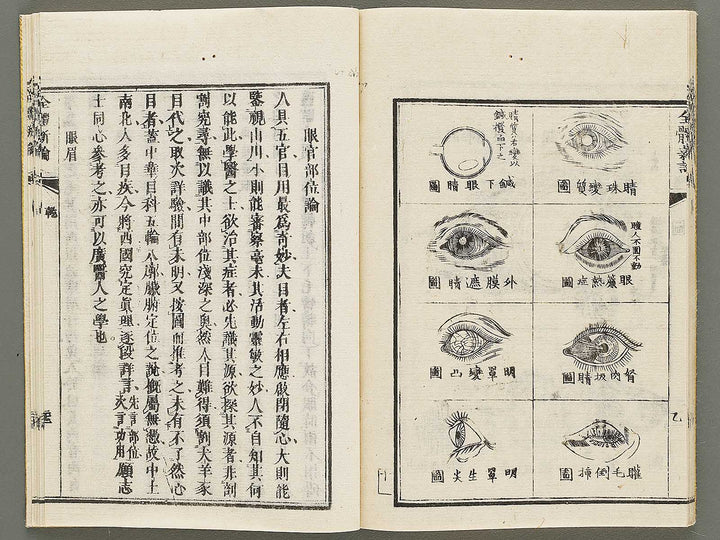 全體新論
睛珠變質圖
瞳人不圓不動
眼簾熱症圖
胬肉扳睛圖
睫毛倒揷圖
鍼下眼睛圖
外膜遮睛圖
明罩變凸圖
明罩生尖圖
眼官部位論
人具五官目用最爲奇妙夫目者左右相應啟閉隨心大則能
鑒視山川小則能審察毫末其活動靈敏之妙人不自知其何
以能此學醫之士欲治其症者必先識其源欲探其源者非剖
割究尋無以識其中部位淺深之奧然人目難得須劏犬羊豕
目代之取次詳驗間有未明又按圖而推考之未有不了然心
目者蓋中華目科五輪八廓臟腑定位之說槪屬無憑故中土
南北人多目疾今將西國究定眞理逐段詳言先言部位次言功用願志
士同心參考之亦可以廣醫人之學也
眼眉
全體新論
乾